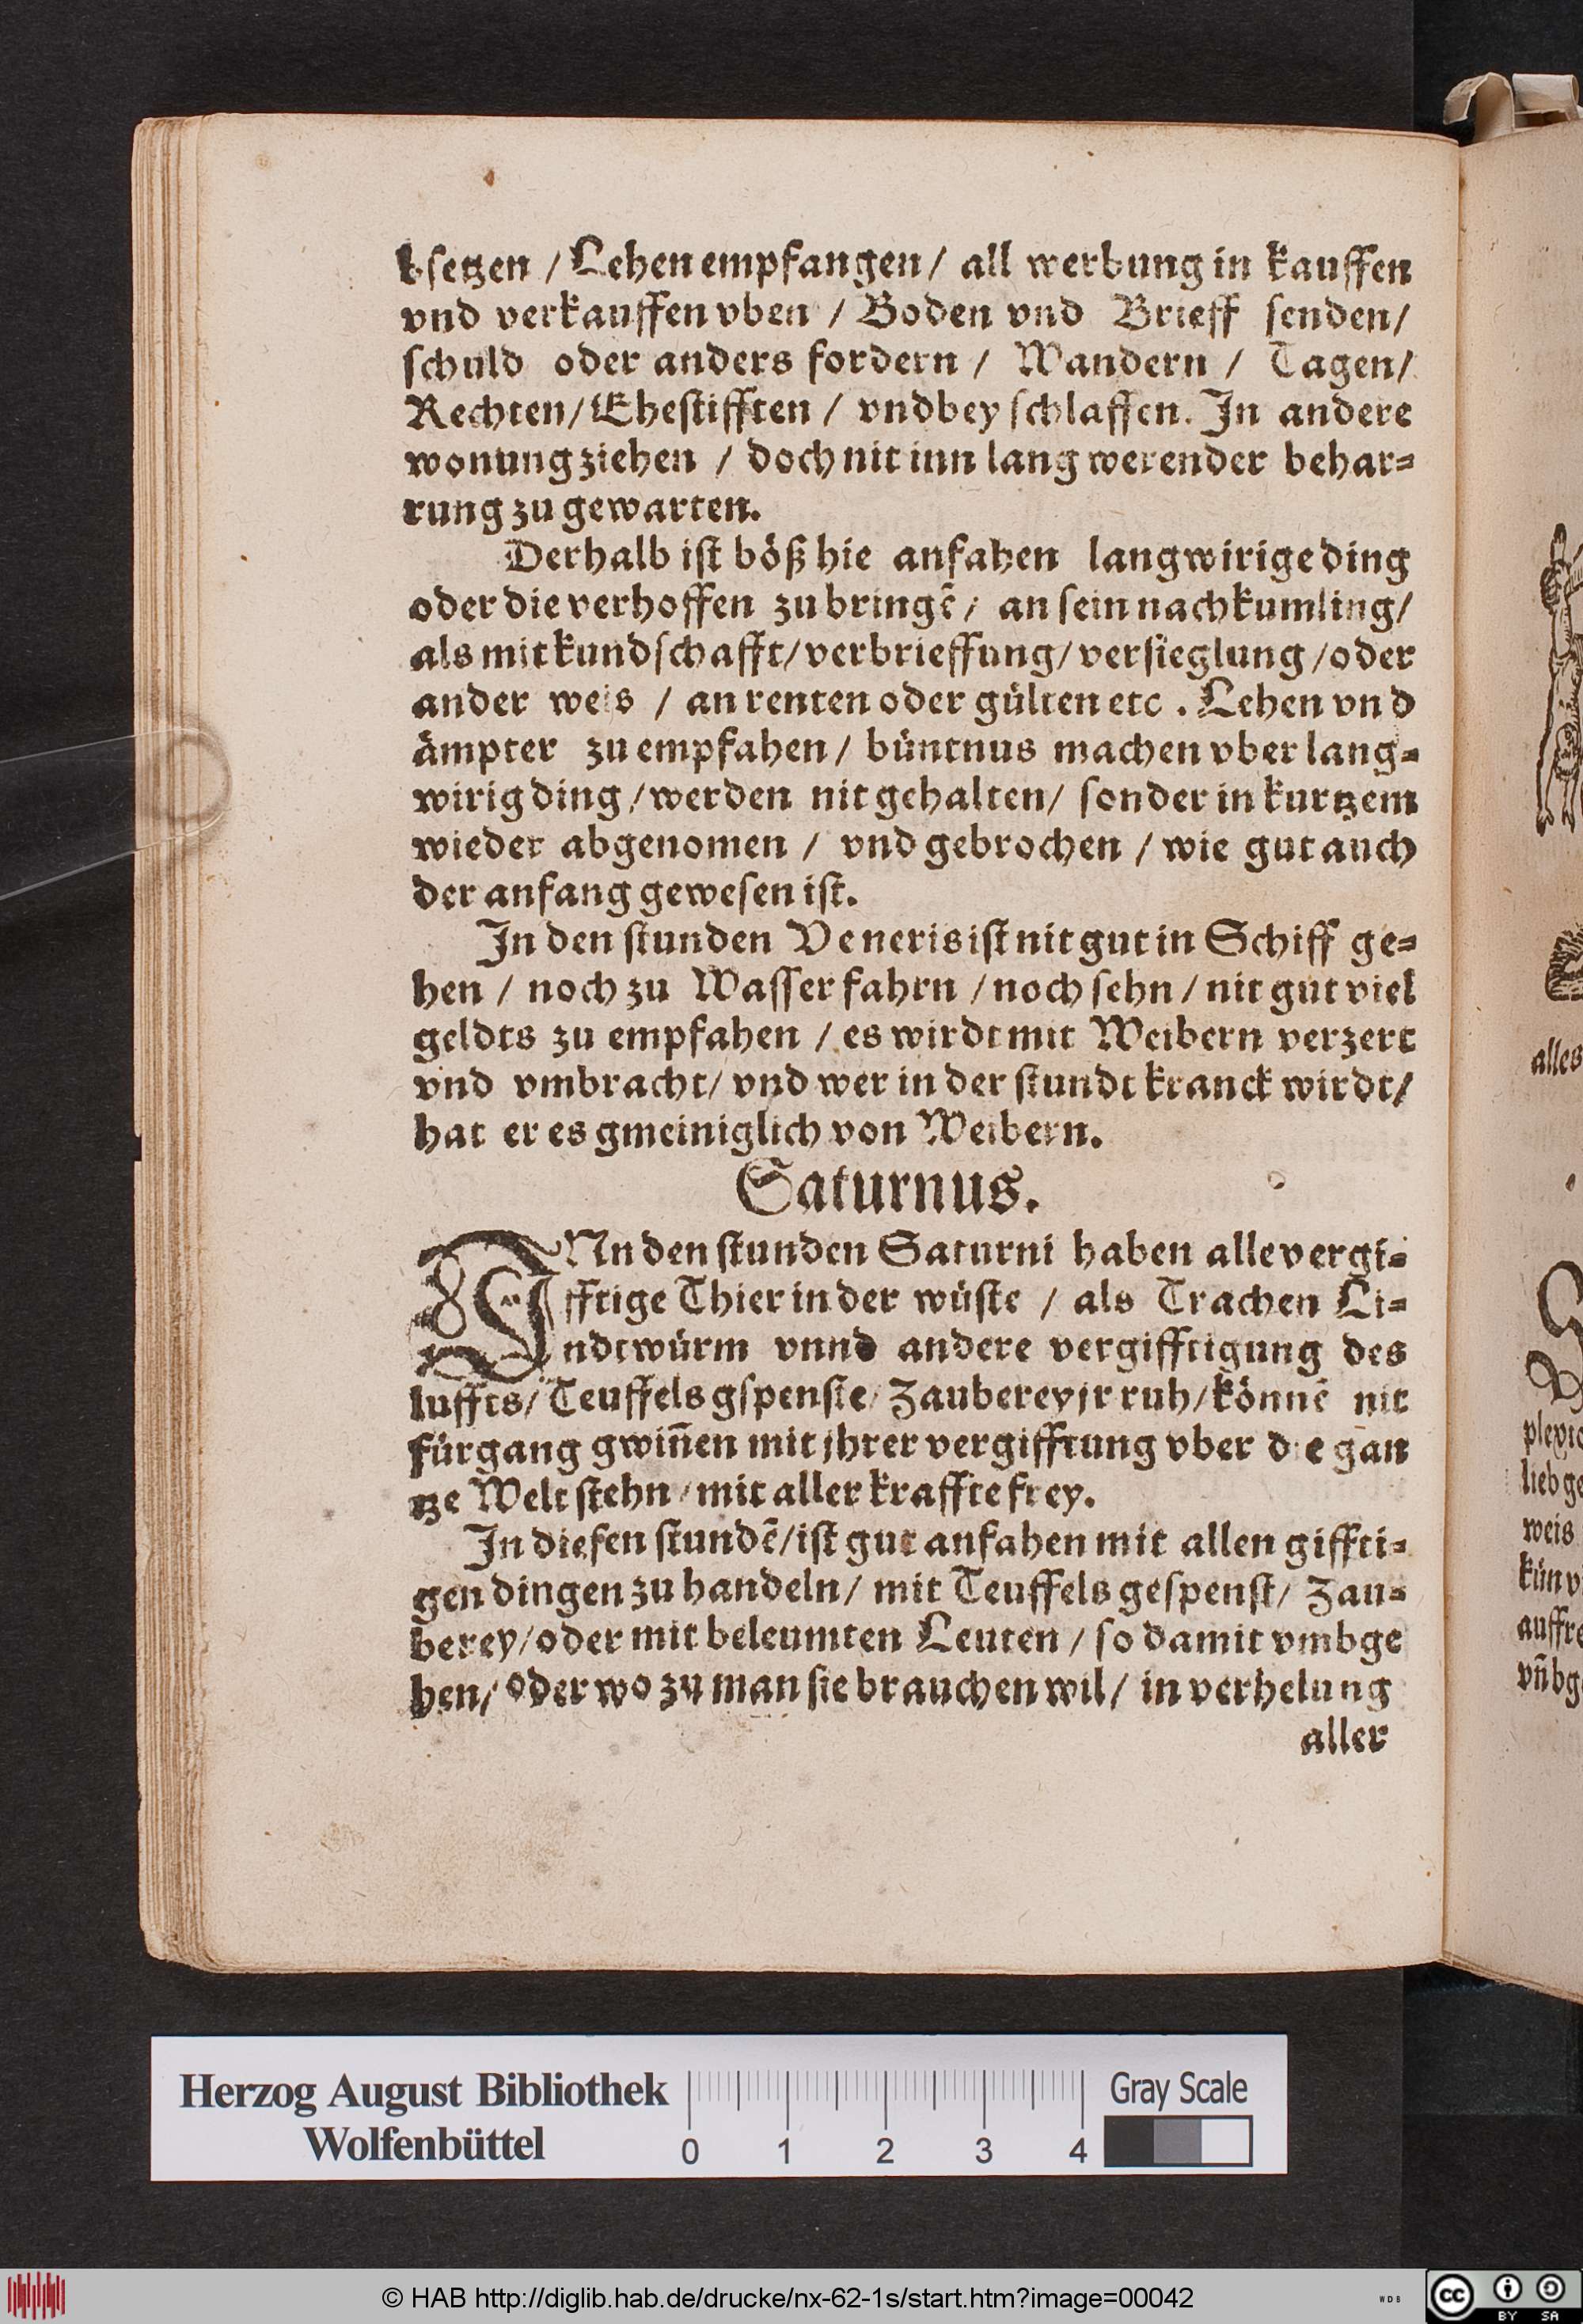 bsetzen / Lehen empfangen / all werbung in kauffen
vnd verkauffen vben / Boden vnd Brieff senden /
schuld oder anders fordern / Wandern / Tagen /
Rechten / Ehestifften / vnd bey schlaffen. In andere
wonung ziehen / doch nit inn lang werender behar=
rung zu gewarten.
Derhalb ist böß hie anfahen langwirige ding
oder die verhoffen zu bringē / an sein nachkumling /
als mit kundschafft / verbrieffung / versieglung / oder
ander weis / an renten oder gülten etc. Lehen vnd
ämpter zu empfahen / büntnus machen vber lang=
wirig ding / werden nit gehalten / sonder in kurtzem
wieder abgenomen / vnd gebrochen / wie gut auch
der anfang gewesen ist.
In den stunden Veneris ist nit gut in Schiff ge=
hen / noch zu Wasser fahrn / noch sehn / nit gut viel
geldts zu empfahen / es wirdt mit Weibern verzert
vnd vmbracht / vnd wer in der stundt kranck wirdt /
hat er es gmeiniglich von Weibern.
Saturnus.
INn den stunden Saturni haben alle vergi=
fftige Thier in der wüste / als Trachen Li=
ndtwürm vnnd andere vergifftigung des
luffts / Teuffels gspenste / Zauberey jr ruh / könnē nit
fürgang gwiñen mit jhrer vergifftung vber die gan
tze Welt stehn / mit aller kraffte frey.
In diesen stundē / ist gut anfahen mit allen giffti=
gen dingen zu handeln / mit Teuffels gespenst / Zau=
berey / oder mit beleumten Leuten / so damit vmbge
hen / oder wo zu man sie brauchen wil / in verhelung
aller
alles
plexio
lieb ge
weis
kün v
auffre
vñ bg
Herzog August Bibliothek
Wolfenbüttel
0 1 2 3 4
Gray Scale
© HAB http://diglib.hab.de/drucke/nx-62-1s/start.htm?image=00042
WDB
cc BY SA